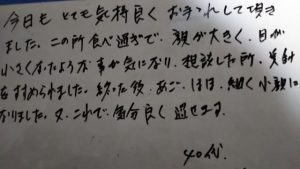 今日も とても気持良く お手入れして頂き
ました。この所食べ過ぎで、顔が大きく、目が
小さくなったような事が気になり、相談した所、美針
をすすめられました。終った後、あご、ほほ、細く小顔に
なりました。又、これで気分良く過せます。
40代